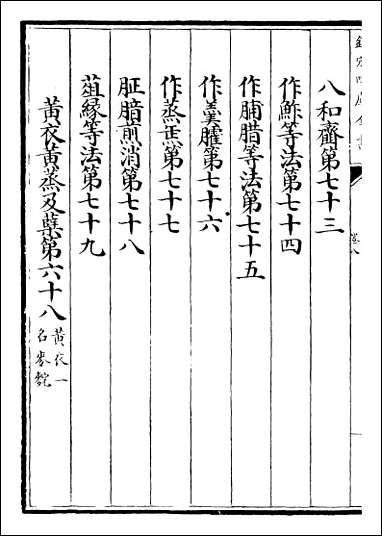 欽定四庫全書
卷八
八和齏第七十三
作鮓等法第七十四
作脯腊等法第七十五
作羹臛第七十六
作蒸缹第七十七
胚腤煎消第七十八
菹緑等法第七十九
黃衣黃蒸及糵第六十八黃衣一名麥䴷